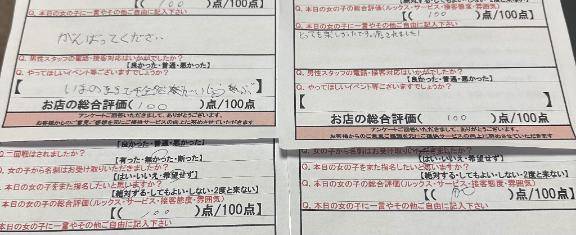 【( 100 )点/100点
Q. 本日の女の子に一言やその他ご自由に記入下さい
がんばってください
Q. 男性スタッフの電話・接客対応はいかがでしたか？
【良かった・普通・悪かった】
Q. やってほしいイベント等ございますでしょうか？
お店の総合評価( 100 )点/100点
アンケートご回答いただきまして、ありがとうございます。
【( 100 )点/100点
Q. 本日の女の子の総合評価(ルックス・サービス・接客態度・雰囲気)
Q. 本日の女の子に一言やその他ご自由に記入下さい
とても楽しかったです。
Q. 男性スタッフの電話・接客対応はいかがでしたか？
【良かった・普通・悪かった】
Q. やってほしいイベント等ございますでしょうか？
お店の総合評価( 100 )点/100点
アンケートご回答いただきまして、ありがとうございます。
【良かった・普通・悪かった】
Q. 二回戦はされましたか？
【有った・無かった・断った】
Q. 女の子から名刺はお受け取りいただきましたか？
【はい・いいえ・希望せず】
Q. 本日の女の子をまた指名したいと思いますか？
【絶対する・してもよい・しない・2度と来ない】
Q. 本日の女の子の総合評価(ルックス・サービス・接客態度・雰囲気)
【( 100 )点/100点】
Q. 本日の女の子に一言やその他ご自由に記入下さい
Q. 女の子から名刺はお受け取りいただきましたか？
【はい・いいえ・希望せず】
Q. 本日の女の子をまた指名したいと思いますか？
【絶対する・してもよい・しない・2度と来ない】
Q. 本日の女の子の総合評価(ルックス・サービス・接客態度・雰囲気)
【( )点/100点】
Q. 本日の女の子に一言やその他ご自由に記入下さい